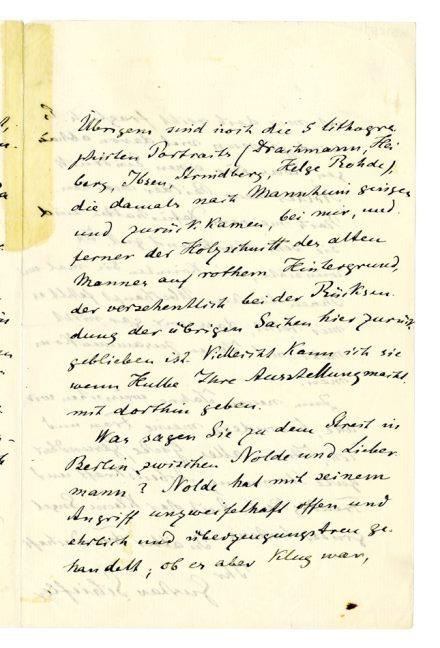 Übrigens sind noch die 5 lithogra
phirten Portraits (Drachmann, Hei
berg, Ibsen, Strindberg, Helge Rohde),
die damals nach Mannheim gingen
und zurück kamen, bei mir, und
ferner der Holzschnitt des alten
Mannes auf rothem Hintergrund,
der versehentlich bei der Rücksen-
dung der übrigen Sachen hier zurück
geblieben ist. Vielleicht kann ich sie
wenn Hulbe Ihre Ausstellung macht,
mit dorthin geben.
Was sagen Sie zu dem Streit in
Berlin zwischen Nolde und Lieber
mann? Nolde hat mit seinem
Angriff ungweifelhaft offen und
ehrlich und überzeugungstreu ge-
handelt; ob er aber klug war,